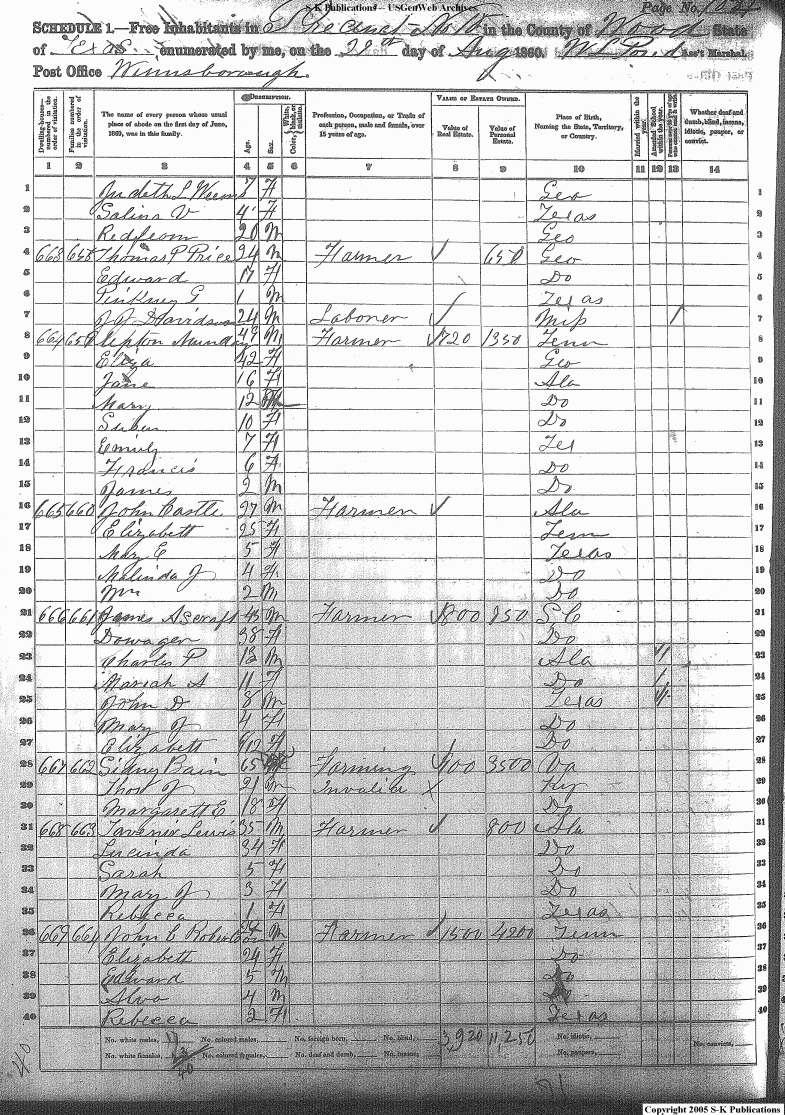 S-K Publications - USGenWeb Archives
Page No.
SCHEDULE 1.—Free Inhabitants in Precinct No in the County of Wood State
of Texas enumerated by me, on the 28th day of Aug 1860. Ass't Marshal.
Post Office Winnsborough.
DESCRIPTION. VALUE OF ESTATE OWNED.
Dwelling-houses—numbered in the order of visitation.
Families numbered in the order of visitation.
The name of every person whose usual place of abode on the first day of June, 1860, was in this family.
Age.
Sex.
Color, White, black, or mulatto.
Profession, Occupation, or Trade of each person, male and female, over 15 years of age.
Value of Real Estate.
Value of Personal Estate.
Place of Birth, Naming the State, Territory, or Country.
Married within the year.
Attended School within the year.
Whether deaf and dumb, blind, insane, idiotic, pauper, or convict.
1 2 3 4 5 6 7 8 9 10 11 12 13 14
1 Judeth L F Geo 1
2 Salina V 4 F Texas 2
3 20 M Geo 3
4 663 658 Thomas P Price 24 M Farmer 650 Geo 4
5 Edward 17 F Do 5
6 Pinkney G 1 M Texas 6
7 J J Davidson 24 M Laborer / 7
8 664 Munday 49 M Farmer 720 1350 Tenn 8
9 Eliza 42 F Geo 9
10 Jane 16 F Ala 10
11 Mary 12 Do 11
12 10 F Do 12
13 Emily 7 F Tex 13
14 Francis 6 F Do 14
15 James 2 M Do 15
16 665 660 John Castle 27 M Farmer Ala 16
17 Elizabeth 25 F Tenn 17
18 Mary E 5 F Texas 18
19 Malinda J 4 F Do 19
20 Wm 2 M Do 20
21 666 661 James Ascraft 45 M Farmer 800 850 S C 21
22 Dowager 38 F Do 22
23 Charles P 13 M Ala 23
24 Mariah A 11 F Do 24
25 John D 8 M Texas 25
26 Mary J 4 F Do 26
27 Elizabeth 9/12 F Do 27
28 667 662 Sidney Bain 65 Farming 3500 Va 28
29 Thos J 21 M Invalid X Ky 29
30 Margarett E 18 F Do 30
31 668 663 Tavener Lewis 35 M Farmer 800 Ala 31
32 Lucinda 34 F Do 32
33 Sarah 5 F Do 33
34 Mary J 3 F Do 34
35 Rebecca 1 F Texas 35
36 669 664 John C M Farmer 1500 4200 Tenn 36
37 Elizabeth 24 F Do 37
38 Edward 5 M Do 38
39 Alva 4 M Do 39
40 Rebecca 2 F Texas 40
No. white males, 17 No. colored males, No. foreign born, No. blind, 3,920 11,250 No. idiotic,
No. white females, 23 No. colored females, No. deaf and dumb, No. insane, No. paupers, No. convicts,
40
40
Copyright 2005 S-K Publications